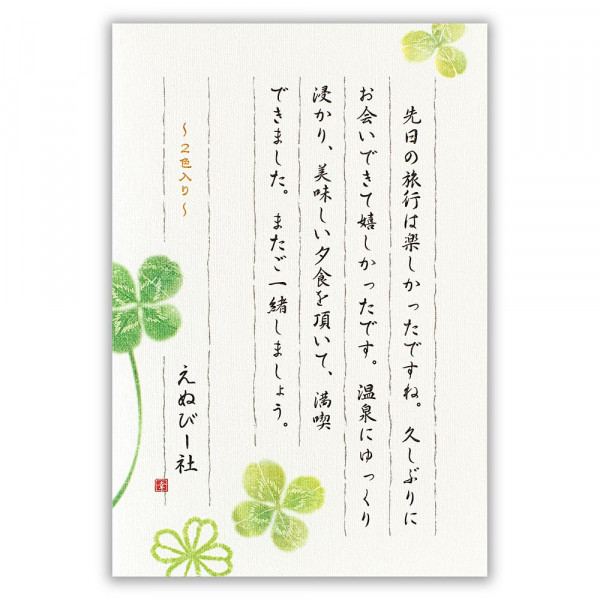 先日の旅行は楽しかったですね。久しぶりに
お会いできて嬉しかったです。温泉にゆっくり
浸かり、美味しい夕食を頂いて、満喫
できました。またご一緒しましょう。
～2色入り～
えぬびー社